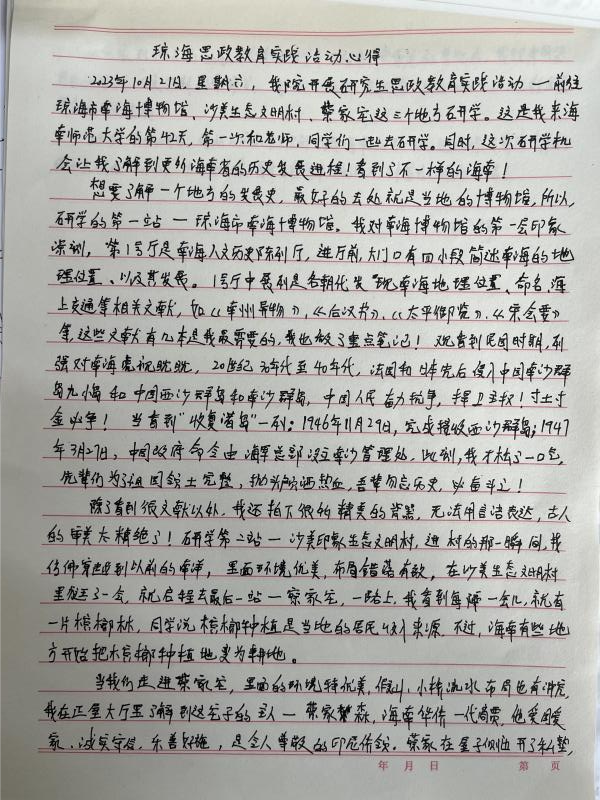 琼海思政教育实践活动心得
2023年10月21日，星期六，我院开展研究生思政教育实践活动—前往
琼海市南海博物馆、沙美生态文明村、蔡家宅这三个地方研学。这是我来海
南师范大学的第42天，第一次和老师，同学们一起去研学。同时，这次研学机
会让我了解到更多海南省的历史发展进程！看到了不一样的海南！
想要了解一个地方的发展史，最好的去处就是当地的博物馆，所以，
研学的第一站—琼海市南海博物馆。我对南海博物馆的第一层印象
深刻，第1号厅是南海人文历史陈列厅，进厅前，大门口有四小段简述南海的地
理位置、以及其发展。1号厅中展列是各朝代发现南海地理位置、命名、海
上交通等相关文献，如《南州异物》、《后汉书》、《太平御览》、《宋会要》
等，这些文献有几本是我最需要的，我也做了重点笔记！观看到民国时期，列
强对南海虎视眈眈，20世纪30年代至40年代，法国和日本先后侵入中国南沙群
岛九小岛和中国西沙群岛和南沙群岛，中国人民奋力抗争，捍卫主权！寸土寸
金必争！当看到“收复诸岛”一列：1946年11月29日，完成接收西沙群岛；1947
年3月27日，中国政府命令由海军总部设立南沙管理处，此刻，我才松了一口气，
先辈们为了祖国领土完整，抛头颅洒热血，吾辈勿忘历史，必奋斗之！
除了看到很文献以外，我还拍下很多精美的背景，无法用言语表达，古人
的审美太精绝了！研学第二站—沙美印象生态文明村，进村的那一瞬间，我
仿佛穿越到以前的南洋，里面环境优美，布局错落有致，在沙美生态文明村
里桩王了一会，就启程去最后一站—蔡家宅，一路上，我看到每隔一会儿，就有
一片槟榔林，同学说槟榔种植是当地的居民收入来源，不过，海南有些地
方开始把槟榔种植地变为耕地。
当我们走进蔡家宅，里面的环境特优美，假山，小桥流水布局也有讲究，
我在正屋大厅里了解到这宅子的主人—蔡家赞森，海南华侨一代商贾，他爱国爱
家、诚实守信，乐善好施，是令人尊敬的印尼侨领。蔡家在屋子侧边开了私塾，
年 月 日 第 页